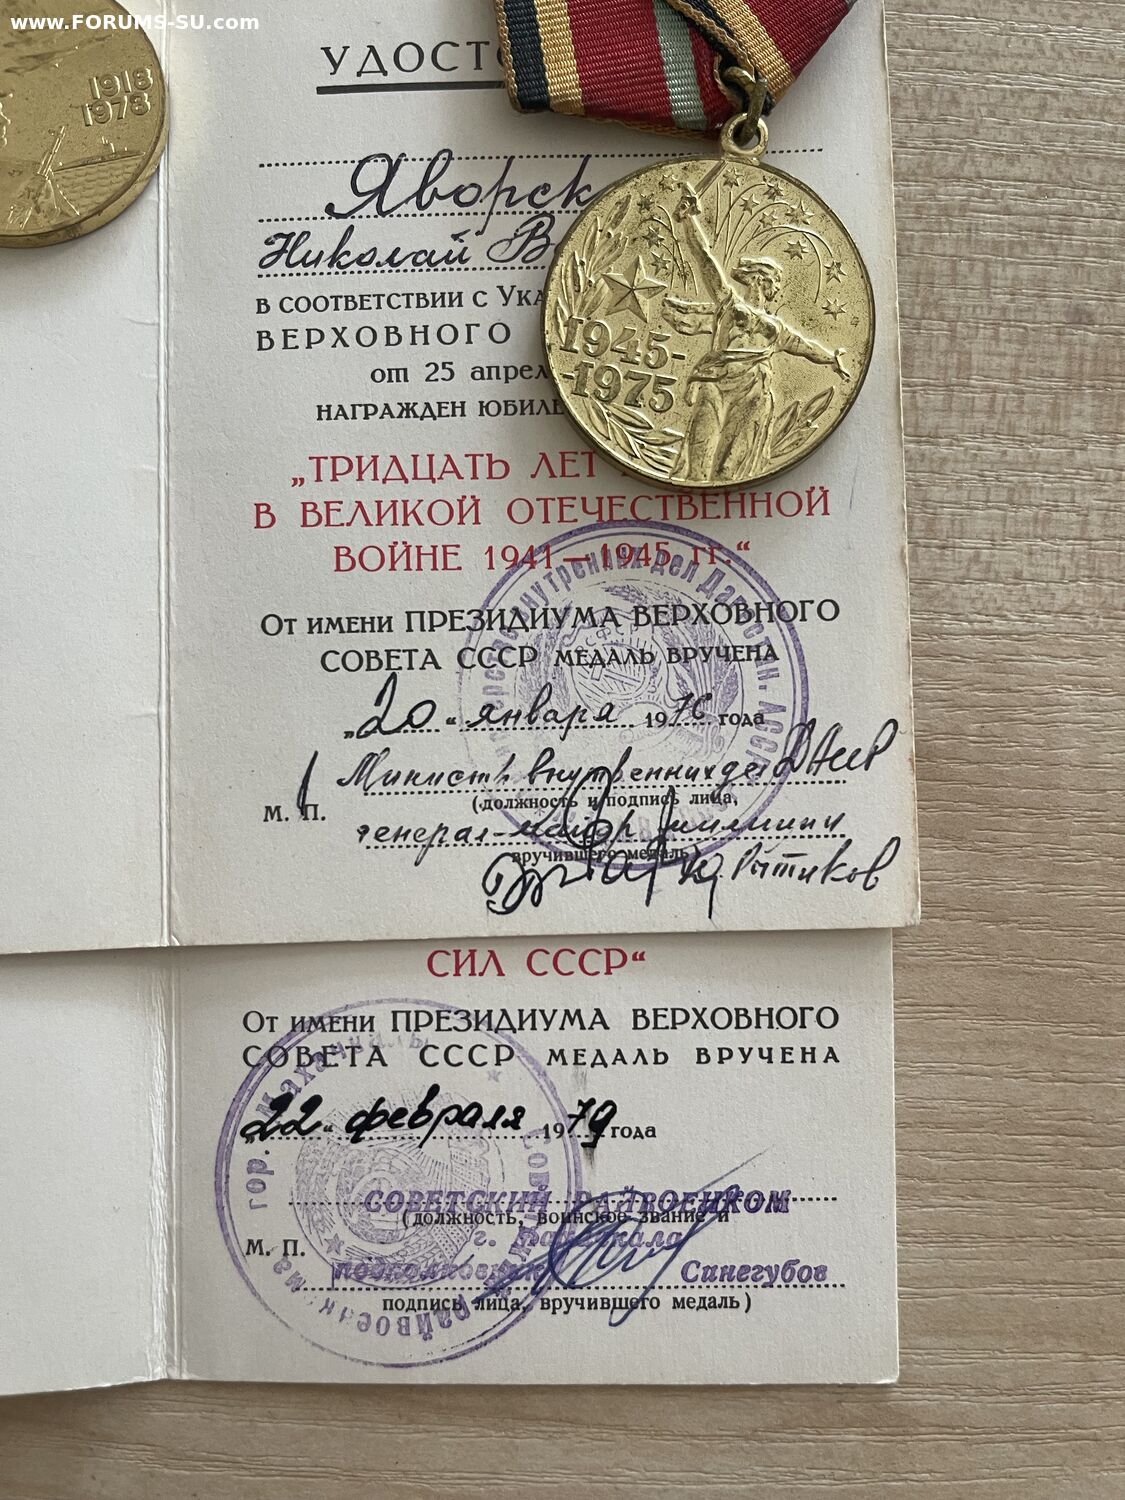 www.FORUMS-SU.com
1918
1978
УДОСТО
Яворск
Николай В
В СООТВЕТСТВИИ С УКА
ВЕРХОВНОГО
от 25 апрел
НАГРАЖДЕН ЮБИЛЕ
1945-
-1975
„ТРИДЦАТЬ ЛЕТ
В ВЕЛИКОЙ ОТЕЧЕСТВЕННОЙ
ВОЙНЕ 1941—1945 гг.“
От имени ПРЕЗИДИУМА ВЕРХОВНОГО
СОВЕТА СССР МЕДАЛЬ ВРУЧЕНА
„20“ января 1976 года
Министр внутренних дел ДАССР
М. П.
(должность и подпись лица,
генерал-майор милиции
вручившего медаль)
внутренних дел Дагестан. АССР
СИЛ СССР“
От имени ПРЕЗИДИУМА ВЕРХОВНОГО
СОВЕТА СССР МЕДАЛЬ ВРУЧЕНА
„22“ февраля 1979 года
СОВЕТСКИЙ РАЙВОЕНКОМ
(должность, воинское звание и
г. Махачкала
М. П.
подполковник Синегубов
подпись лица, вручившего медаль)
гор. Махачкалы